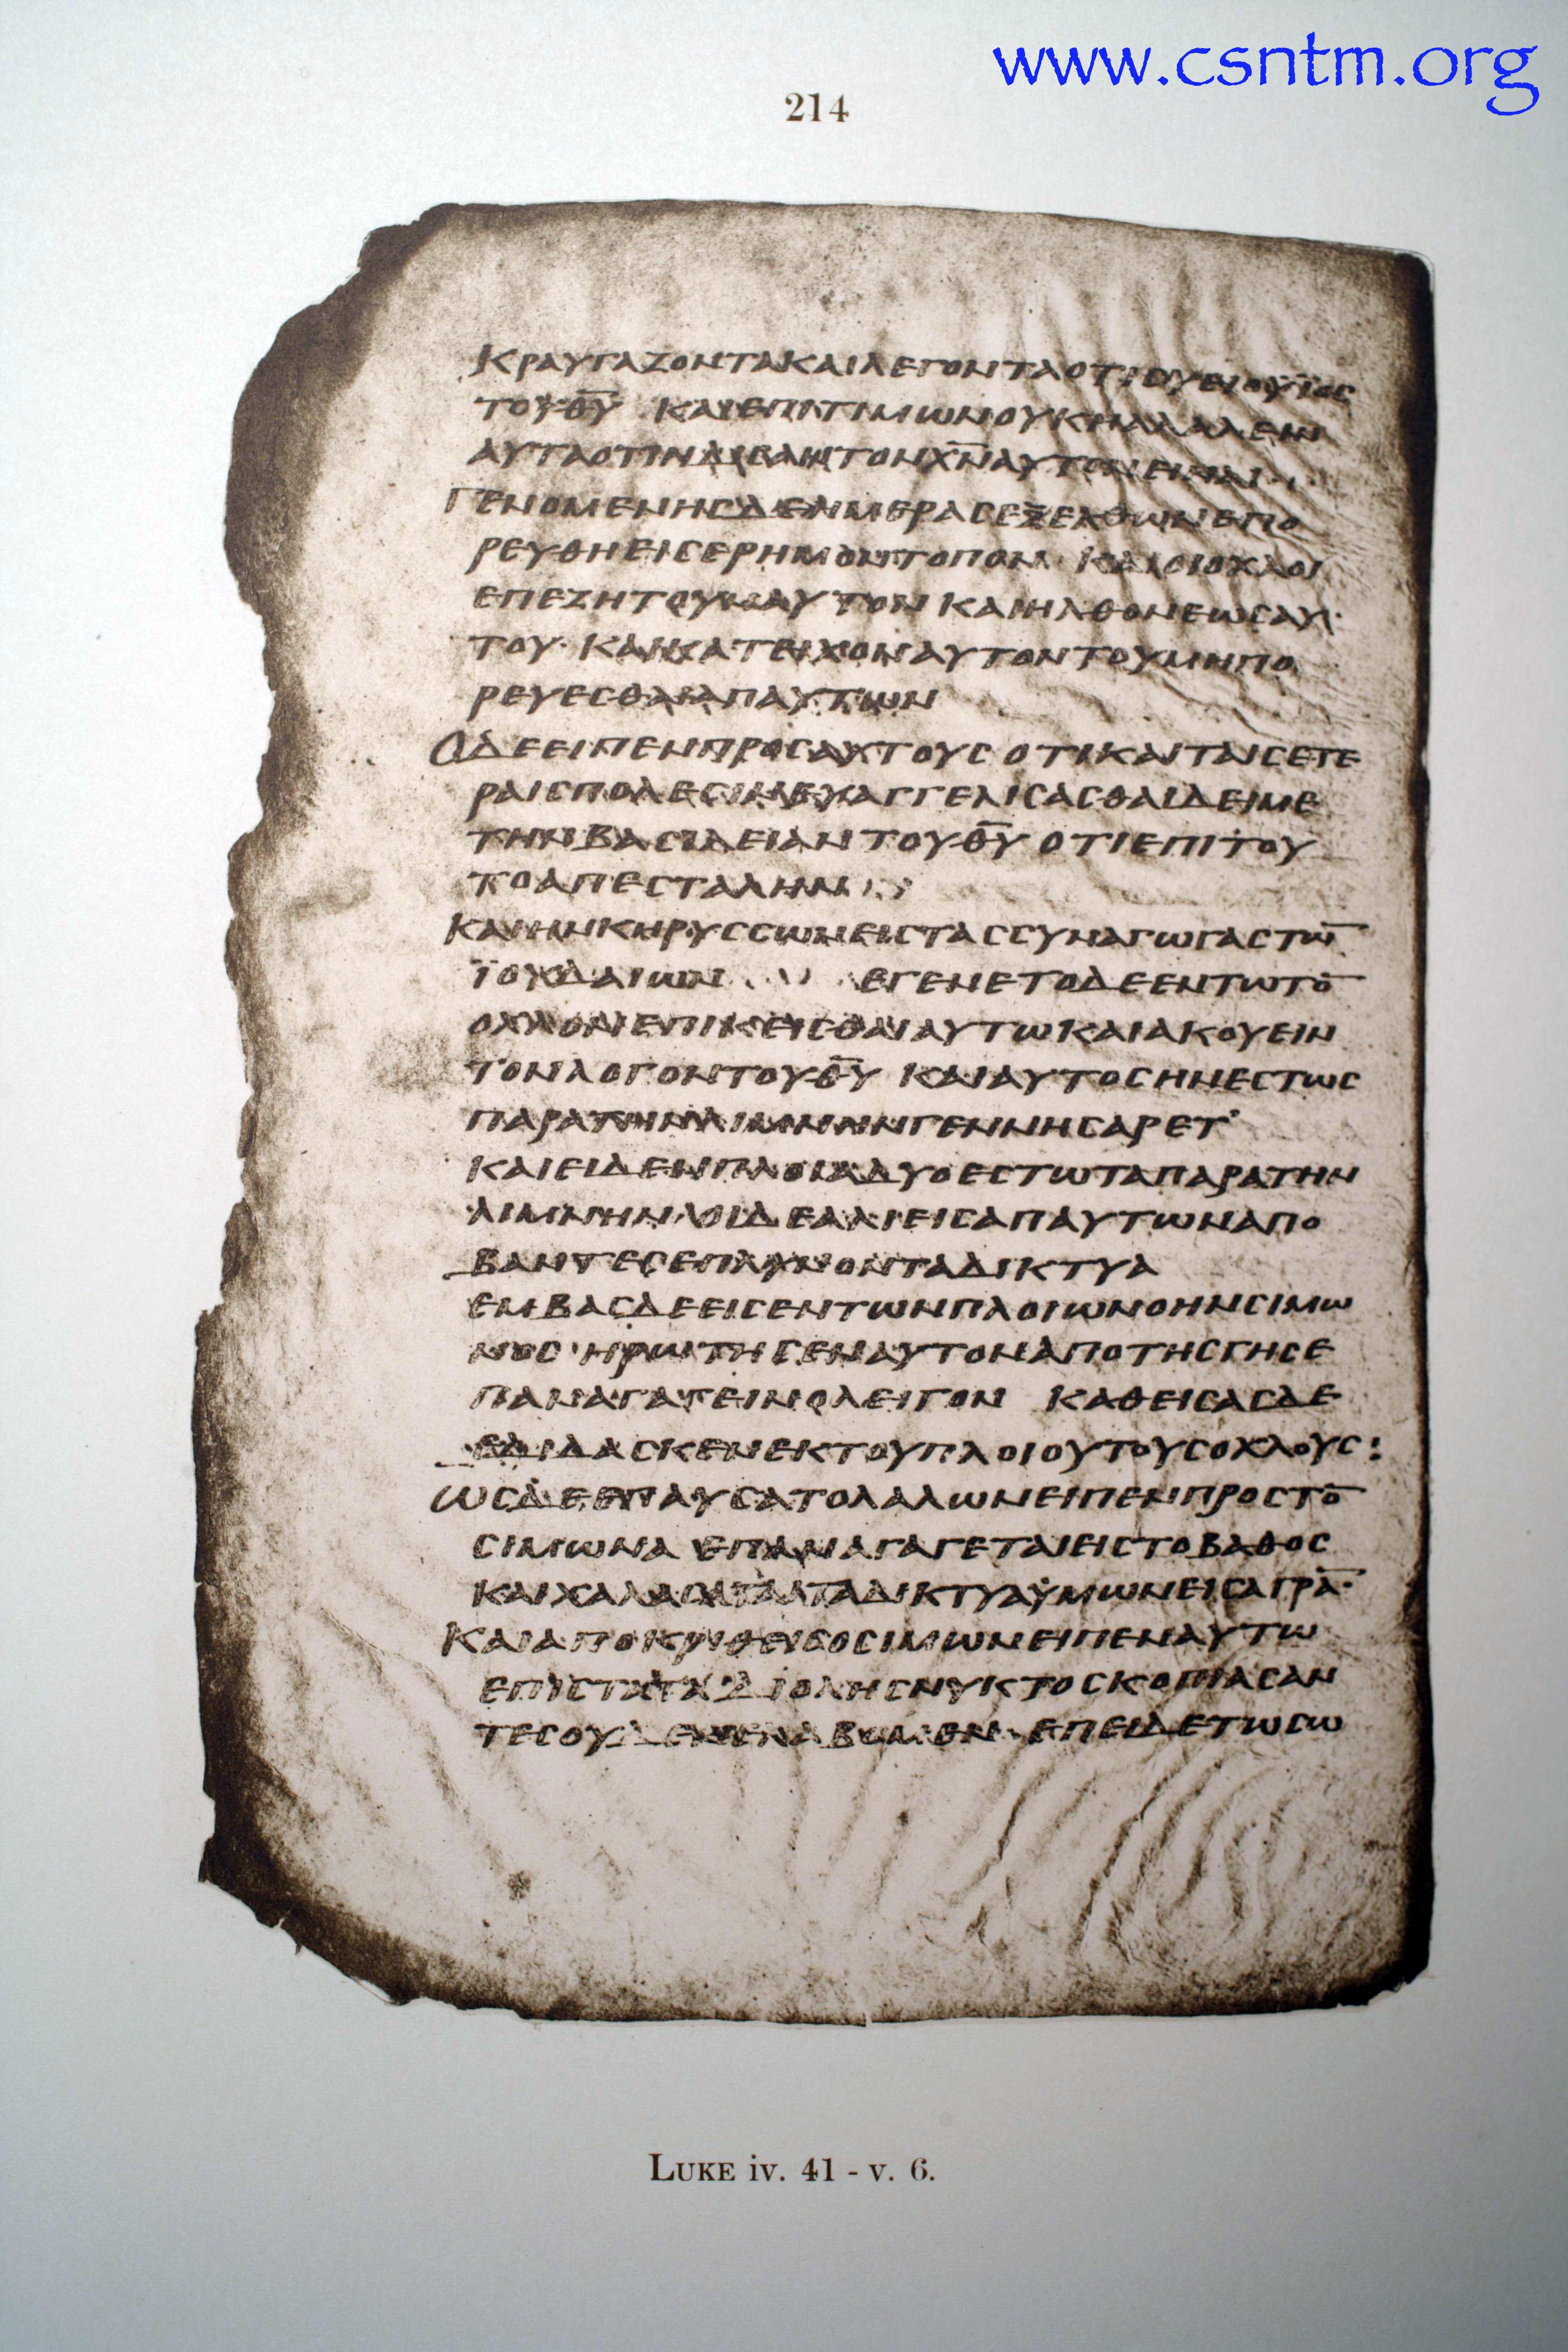 www.csntm.org
214
ΚΡΑΥΓΑΖΟΝΤΑΚΑΙΛΕΓΟΝΤΑΟΤΙΣΥΕΙΟΥΪΟΣ
ΤΟΥΘ̅Υ̅ ΚΑΙΕΠΙΤΙΜΩΝΟΥΚΗΑΛΑΛΕΙΝ
ΑΥΤΑΟΤΙΗΔΙΣΑΝΤΟΝΧ̅Ν̅ΑΥΤΟΝΕΙΝΑΙ
ΓΕΝΟΜΕΝΗΣΔΕΗΜΕΡΑΣΕΞΕΛΘΩΝΕΠΟ
ΡΕΥΘΗΕΙΣΕΡΗΜΟΝΤΟΠΟΝ ΚΑΙΟΙΟΧΛΟΙ
ΕΠΕΖΗΤΟΥΝΑΥΤΟΝΚΑΙΗΛΘΟΝΕΩΣΑΥ
ΤΟΥ· ΚΑΙΚΑΤΕΙΧΟΝΑΥΤΟΝΤΟΥΜΗΠΟ
ΡΕΥΕΣΘΑΙΑΠΑΥΤΩΝ
ΟΔΕΕΙΠΕΝΠΡΟΣΑΥΤΟΥΣ ΟΤΙΚΑΙΤΑΙΣΕΤΕ
ΡΑΙΣΠΟΛΕΣΙΝΕΥΑΓΓΕΛΙΣΑΣΘΑΙΔΕΙΜΕ
ΤΗΝΒΑΣΙΛΕΙΑΝΤΟΥΘ̅Υ̅ ΟΤΙΕΠΙΤΟΥ
ΤΟΑΠΕΣΤΑΛΗΝ
ΚΑΙΗΝΚΗΡΥΣΣΩΝΕΙΣΤΑΣΣΥΝΑΓΩΓΑΣΤΩ̅
ΪΟΥΔΑΙΩΝ ΕΓΕΝΕΤΟΔΕΕΝΤΩΤΟ̅
ΟΧΛΟΝΕΠΙΚΕΙΣΘΑΙΑΥΤΩΚΑΙΑΚΟΥΕΙΝ
ΤΟΝΛΟΓΟΝΤΟΥΘ̅Υ̅ ΚΑΙΑΥΤΟΣΗΝΕΣΤΩΣ
ΠΑΡΑΤΗΝΛΙΜΝΗΝΓΕΝΝΗΣΑΡΕΤ
ΚΑΙΕΙΔΕΝΠΛΟΙΑΔΥΟΕΣΤΩΤΑΠΑΡΑΤΗΝ
ΛΙΜΝΗΝΟΙΔΕΑΛΙΕΙΣΑΠΑΥΤΩΝΑΠΟ
ΒΑΝΤΕΣΕΠΛΥΝΟΝΤΑΔΙΚΤΥΑ
ΕΜΒΑΣΔΕΕΙΣΕΝΤΩΝΠΛΟΙΩΝΟΗΝΣΙΜΩ
ΝΟΣ· ΗΡΩΤΗΣΕΝΑΥΤΟΝΑΠΟΤΗΣΓΗΣΕ
ΠΑΝΑΓΑΓΕΙΝΟΛΕΙΓΟΝ ΚΑΘΕΙΣΑΣΔΕ
ΕΔΙΔΑΣΚΕΝΕΚΤΟΥΠΛΟΙΟΥΤΟΥΣΟΧΛΟΥΣ:
ΩΣΔΕΕΠΑΥΣΑΤΟΛΑΛΩΝΕΙΠΕΝΠΡΟΣΤΟ̅
ΣΙΜΩΝΑ ΕΠΑΝΑΓΑΓΕΤΑΙΕΙΣΤΟΒΑΘΟΣ
ΚΑΙΧΑΛΑΣΑΤΑΙΤΑΔΙΚΤΥΑΫΜΩΝΕΙΣΑΓΡΑ̅
ΚΑΙΑΠΟΚΡΙΘΕΙΣΟΣΙΜΩΝΕΙΠΕΝΑΥΤΩ
ΕΠΙΣΤΑΤΑ ΔΙΟΛΗΣΝΥΚΤΟΣΚΟΠΙΑΣΑΝ
ΤΕΣΟΥΔΕΝΕΛΑΒΟΜΕΝ ΕΠΕΙΔΕΤΩΣΩ
LUKE iv. 41 - v. 6.